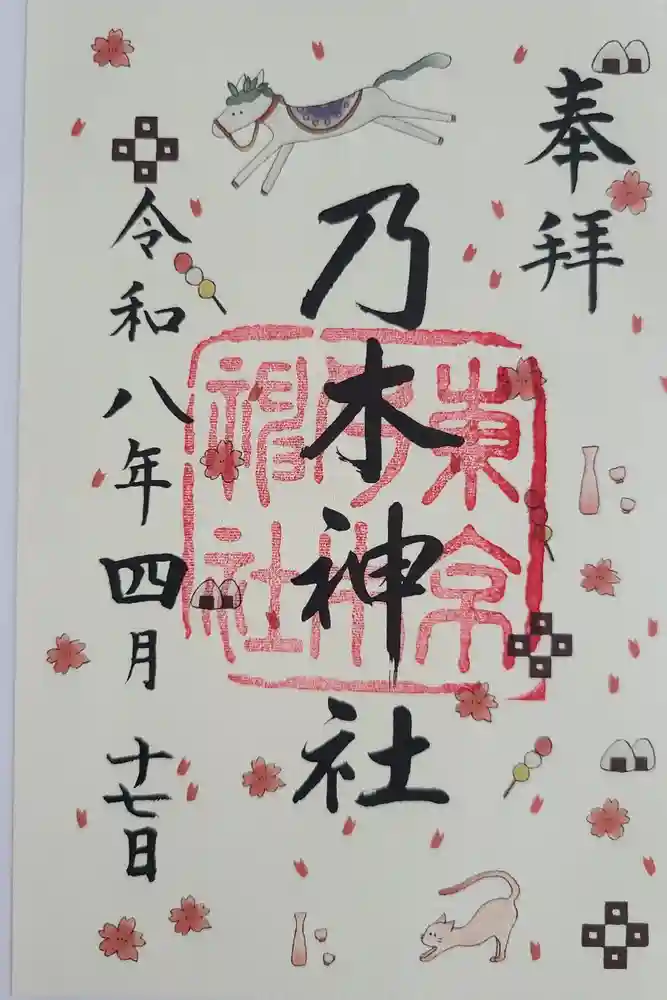 奉拝
乃木神社
東京
乃木
神社
令和八年四月十七日